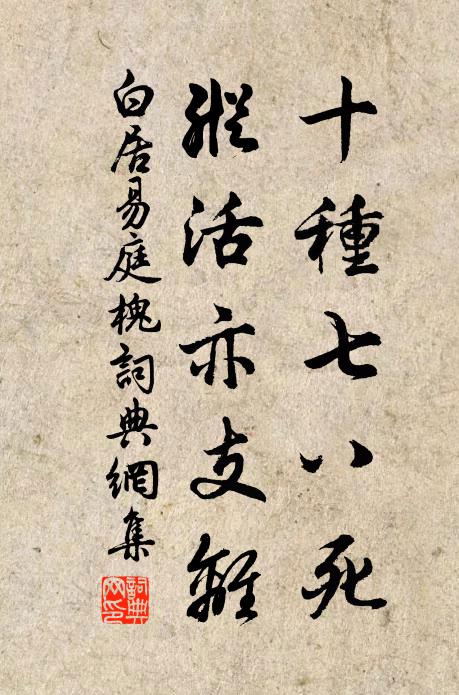 十種七八死
縱活亦支離
白居易庭槐詞典網集
詞典網印